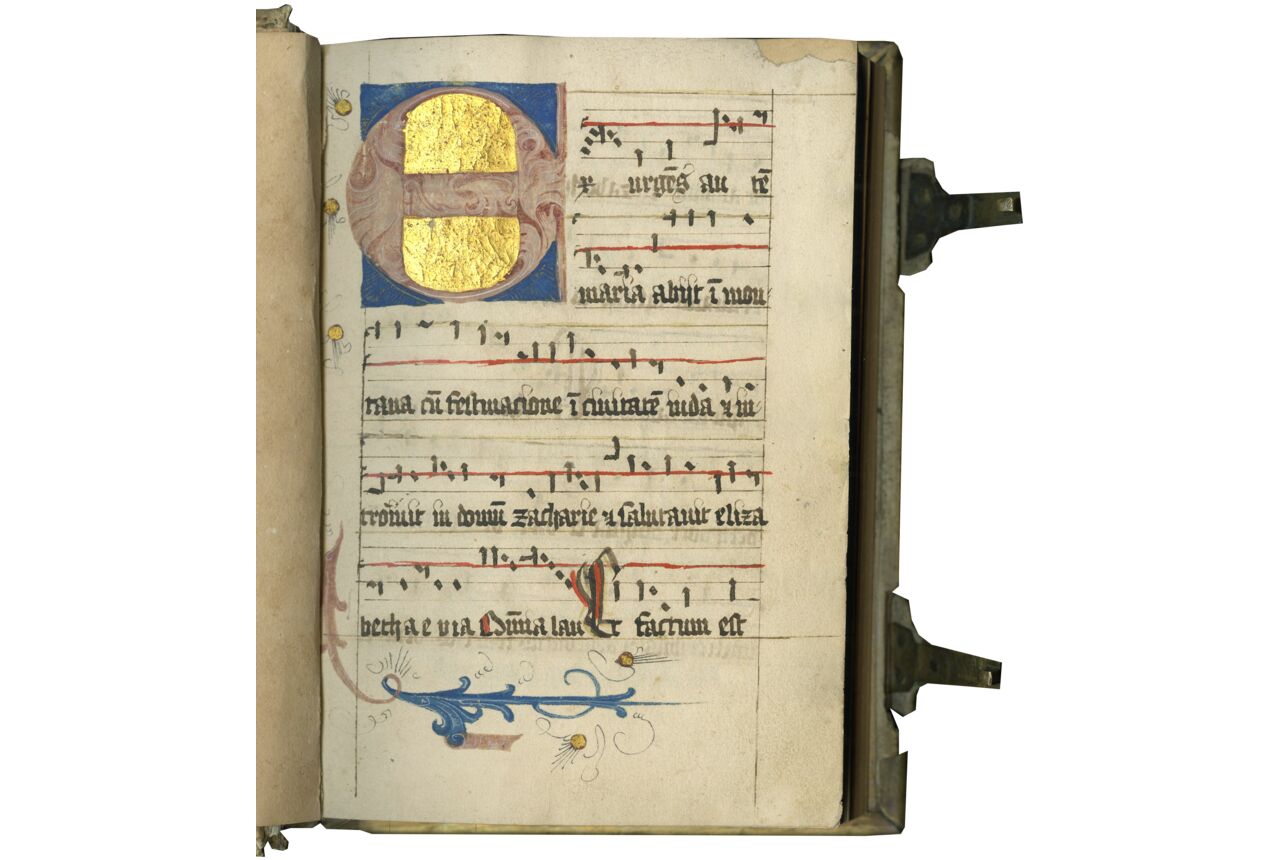 Exurgēs au tē
maria abijt ī mon
tana cū festinacione ī ciuitatē iuda & in
trouit in domū zacharie & salutauit eliza
beth a e v i a Om̄ia lau Et factum est